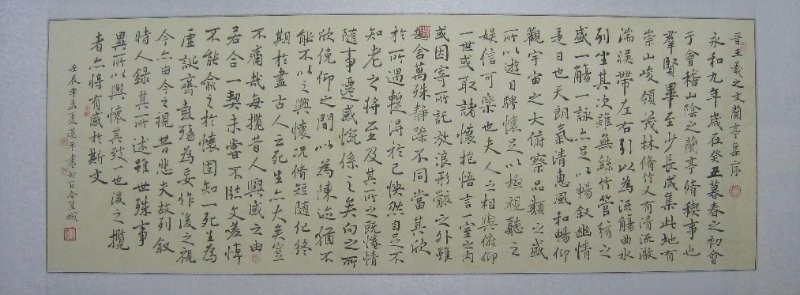 晋王羲之文蘭亭集序
永和九年歲在癸丑暮春之初會
于會稽山陰之蘭亭脩稧事也
羣賢畢至少長咸集此地有
崇山峻領茂林脩竹又有清流激
湍暎帶左右引以為流觴曲水
列坐其次雖無絲竹管絃之
盛一觴一詠亦足以暢敘幽情
是日也天朗氣清惠風和暢仰
觀宇宙之大俯察品類之盛
所以遊目騁懷足以極視聽之
娛信可樂也夫人之相與俯仰
一世或取諸懷抱悟言一室之內
或因寄所託放浪形骸之外雖
趣舍萬殊靜躁不同當其欣
於所遇暫得於己怏然自足不
知老之將至及其所之既惓情
隨事遷感慨係之矣向之所
欣俛仰之間以為陳迹猶不
能不以之興懷況脩短隨化終
期於盡古人云死生亦大矣豈
不痛哉每攬昔人興感之由
若合一契未嘗不臨文嗟悼
不能喻之於懷固知一死生為
虛誕齊彭殤為妄作後之視
今亦由今之視昔悲夫故列敘
時人錄其所述雖世殊事
異所以興懷其致一也後之攬
者亦將有感於斯文
壬辰年